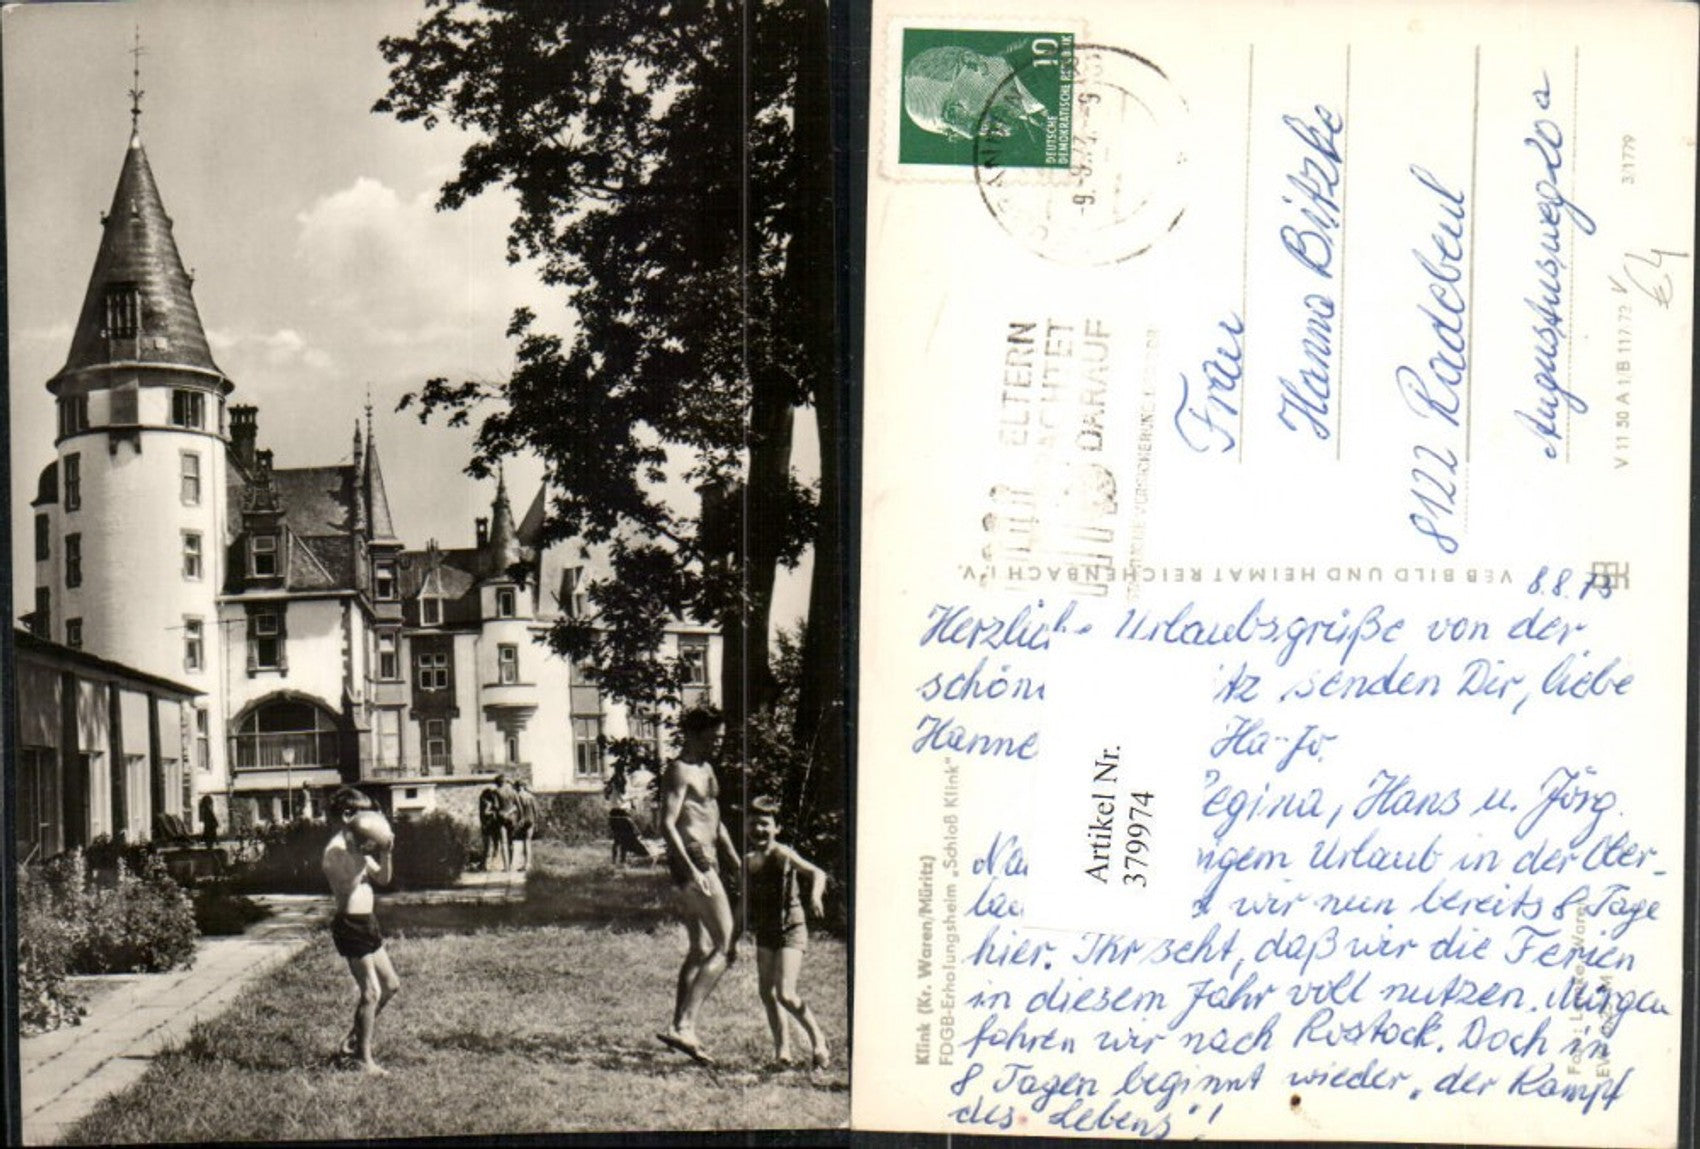 10
DEUTSCHE
DEMOKRATISCHE REPUBLIK
-9.-8.73.-9
ELTERN
ACHTET
DARAUF
Frau
Hanna Bitzke
8122 Radebeul
Augustusweg 60a
3/1779
V 11 50 A 1/B 117/73 V
€4
VEB BILD UND HEIMAT REICHENBACH I. V.
8.8.73
Herzliche Urlaubsgrüße von der
schön tz senden Dir, liebe
Hanne Ha-Jo.
Regina, Hans u. Jörg.
Na igem Urlaub in der Ober-
lau wir nun bereits 8 Tage
hier. Ihr seht, daß wir die Ferien
in diesem Jahr voll nutzen. Morgen
fahren wir nach Rostock. Doch in
8 Tagen beginnt wieder „der Kampf
des Lebens"!
Artikel Nr.
379974
Klink (Kr. Waren/Müritz)
FDGB-Erholungsheim „Schloß Klink"